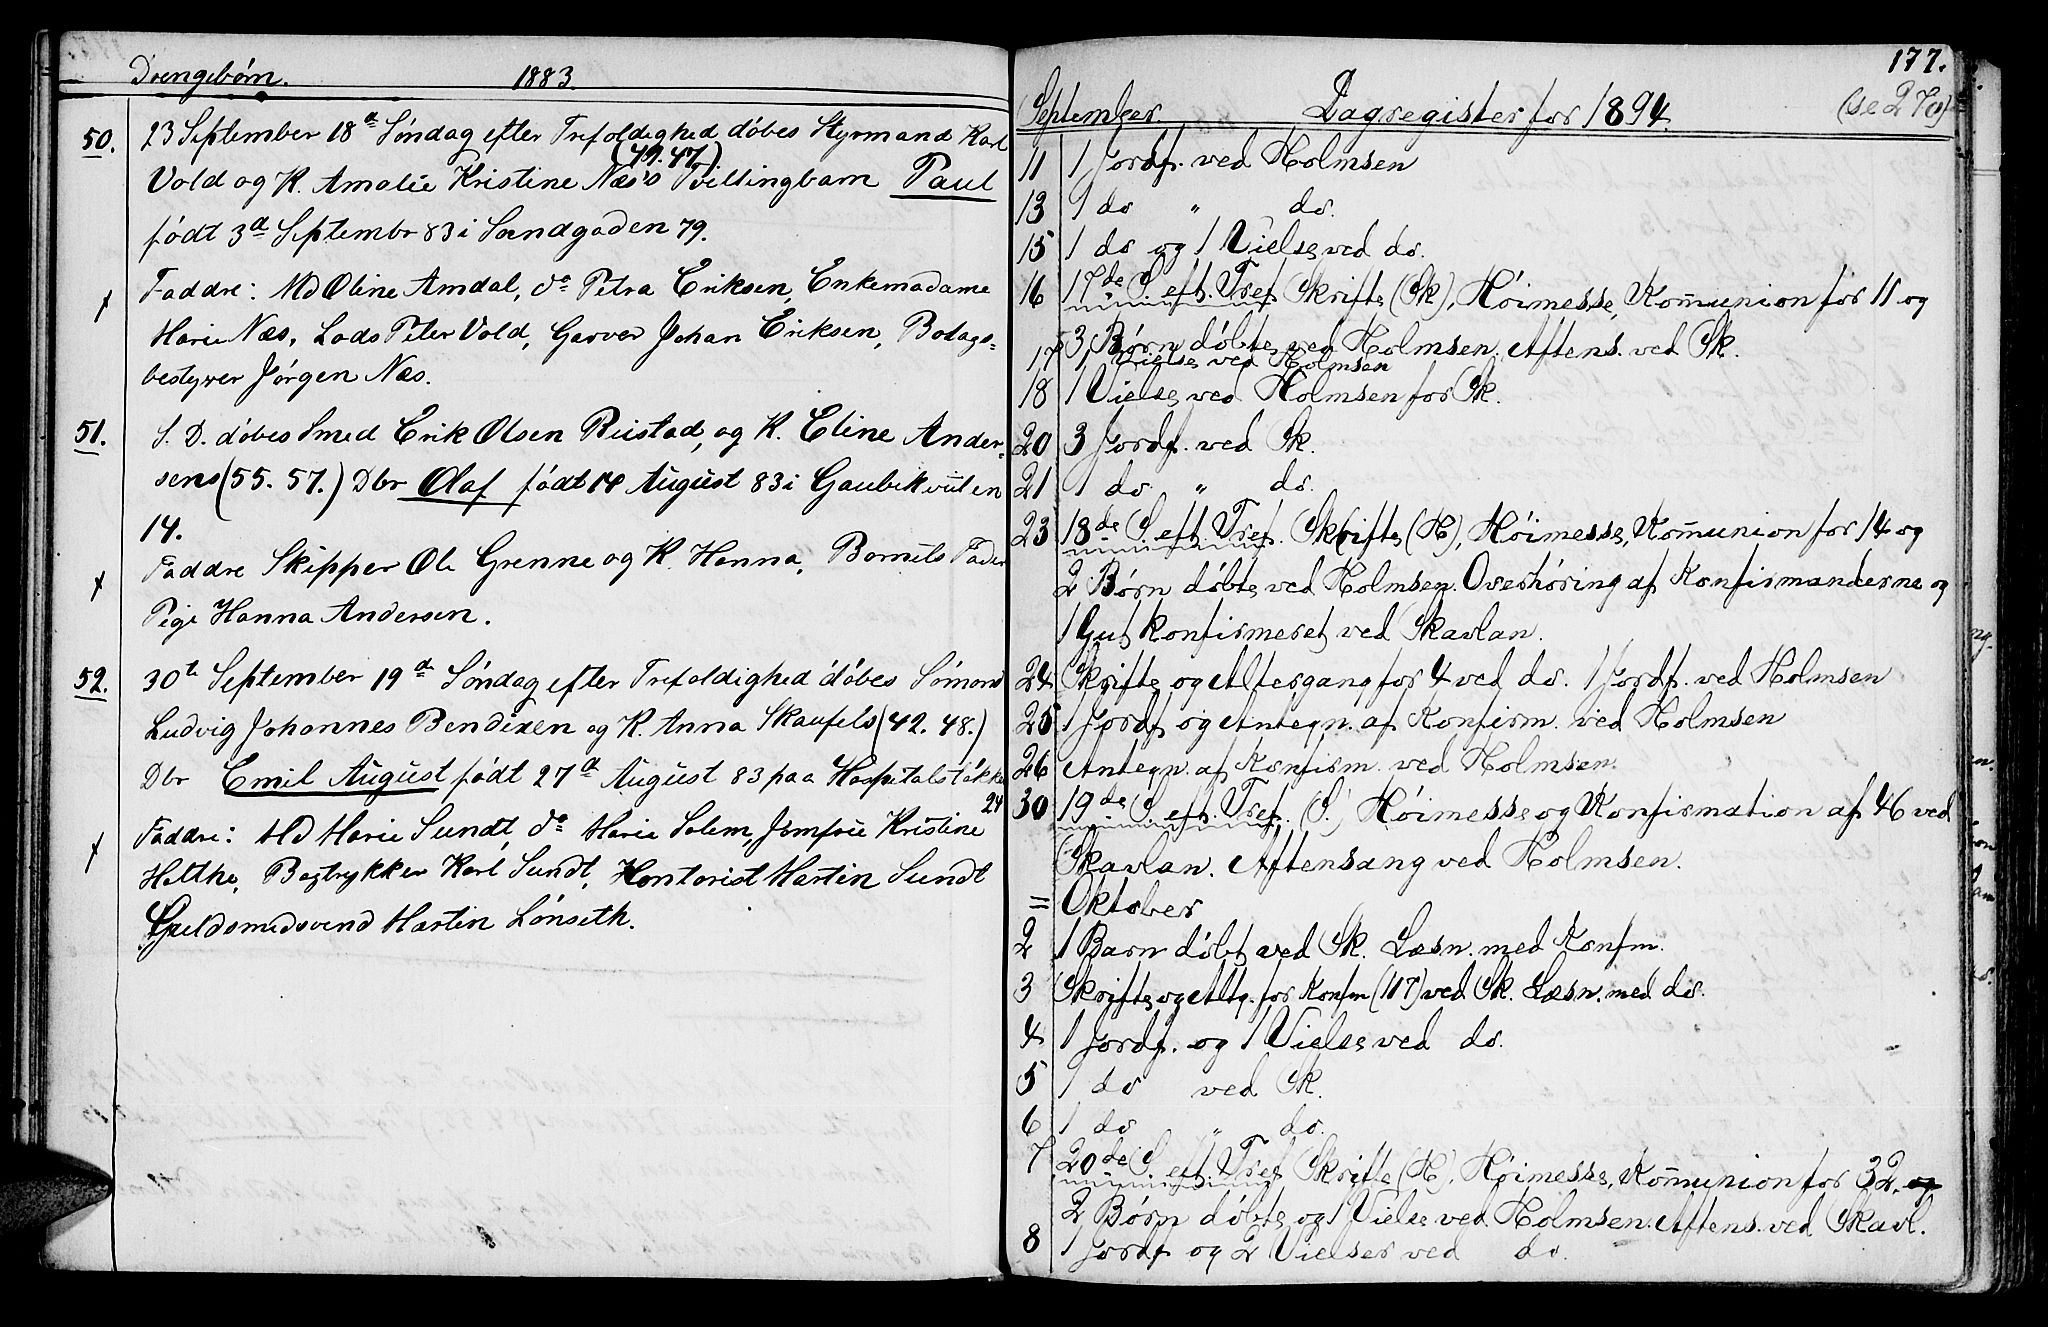 Drengebørn. 1883.
50. 23 September 18d Søndag efter Trefoldighed døbes Styrmand Karl
(49. 47)
Vold og K. Amalie Kristine Næs's Tvillingbarn Paul
født 3d Septembr 83 i Sandgaden 79.
Faddre: Md Oline Amdal, do Petra Eriksen, Enkemadame
Marie Næs, Lods Peter Vold, Garver Johan Eriksen, Bolags-
bestyrer Jørgen Næs.
51. S. D. døbes Smed Erik Olsen Reistad, og K. Eline Ander-
sens (55. 57.) Dbr Olaf født 14 August 83 i Gaubekveiten
14.
Faddre Skipper Ole Grenne og K. Hanna, Barnets Fader
Pige Hanna Andersen.
52. 30te September 19d Søndag efter Trefoldighed døbes Sømand
Ludvig Johannes Bendixen og K. Anna Skaufels (42. 48.)
Dbr Emil August født 27d August 83 paa Hospitalsløkke
24
Faddre: Md Marie Sundt, do Marie Solem, Jomfrue Kristine
Holthe, Bogtrykker Karl Sundt, Kontorist Martin Sundt
Guldsmedsvend Martin Lønseth.
177.
September. Dagregister for 1894. (se 270)
11 1 Jordf. ved Holmsen
13 1 do " do.
15 1 do og 1 Vielse ved do.
16 17de S. eft. Tref. Skrifte (Sk), Høimesse, Kommunion for 11 og
3 Børn døbte ved Holmsen. Aftens. ved Sk.
17 1 Vielse ved Holmsen
18 1 Vielse ved Holmsen for Sk.
20 3 Jordf. ved Sk.
21 1 do " do.
23 18de S. eft. Tref. Skrifte (H), Høimesse, Kommunion for 14 og
2 Børn døbte ved Holmsen. Overhøring af Konfirmanderne og
1 Gut konfirmeret ved Skavlan.
24 Skrifte og Altergang for 4 ved do. 1 Jordf. ved Holmsen
25 1 Jordf og Antegn. af Konfirm. ved Holmsen
26 Antegn. af Konfirm. ved Holmsen.
30 19de S. eft. Tref. (S.) Høimesse og Konfirmation af 46 ved
Skavlan. Aftensang ved Holmsen.
= Oktober
2 1 Barn døbt ved Sk. Læsn. med Konfm.
3 Skrifte og Altg. for Konfm (117) ved Sk. Læsn. med do.
4 1 Jordf. og 1 Vielse ved do.
5 1 do ved Sk.
6 1 do " do.
7 20de S. eft. Tref. Skrifte (H), Høimesse, Kommunion for 32. og
2 Børn døbte og 1 Vielse ved Holmsen. Aftens. ved Skavl.
8 1 Jordf og 2 Vielser ved do.